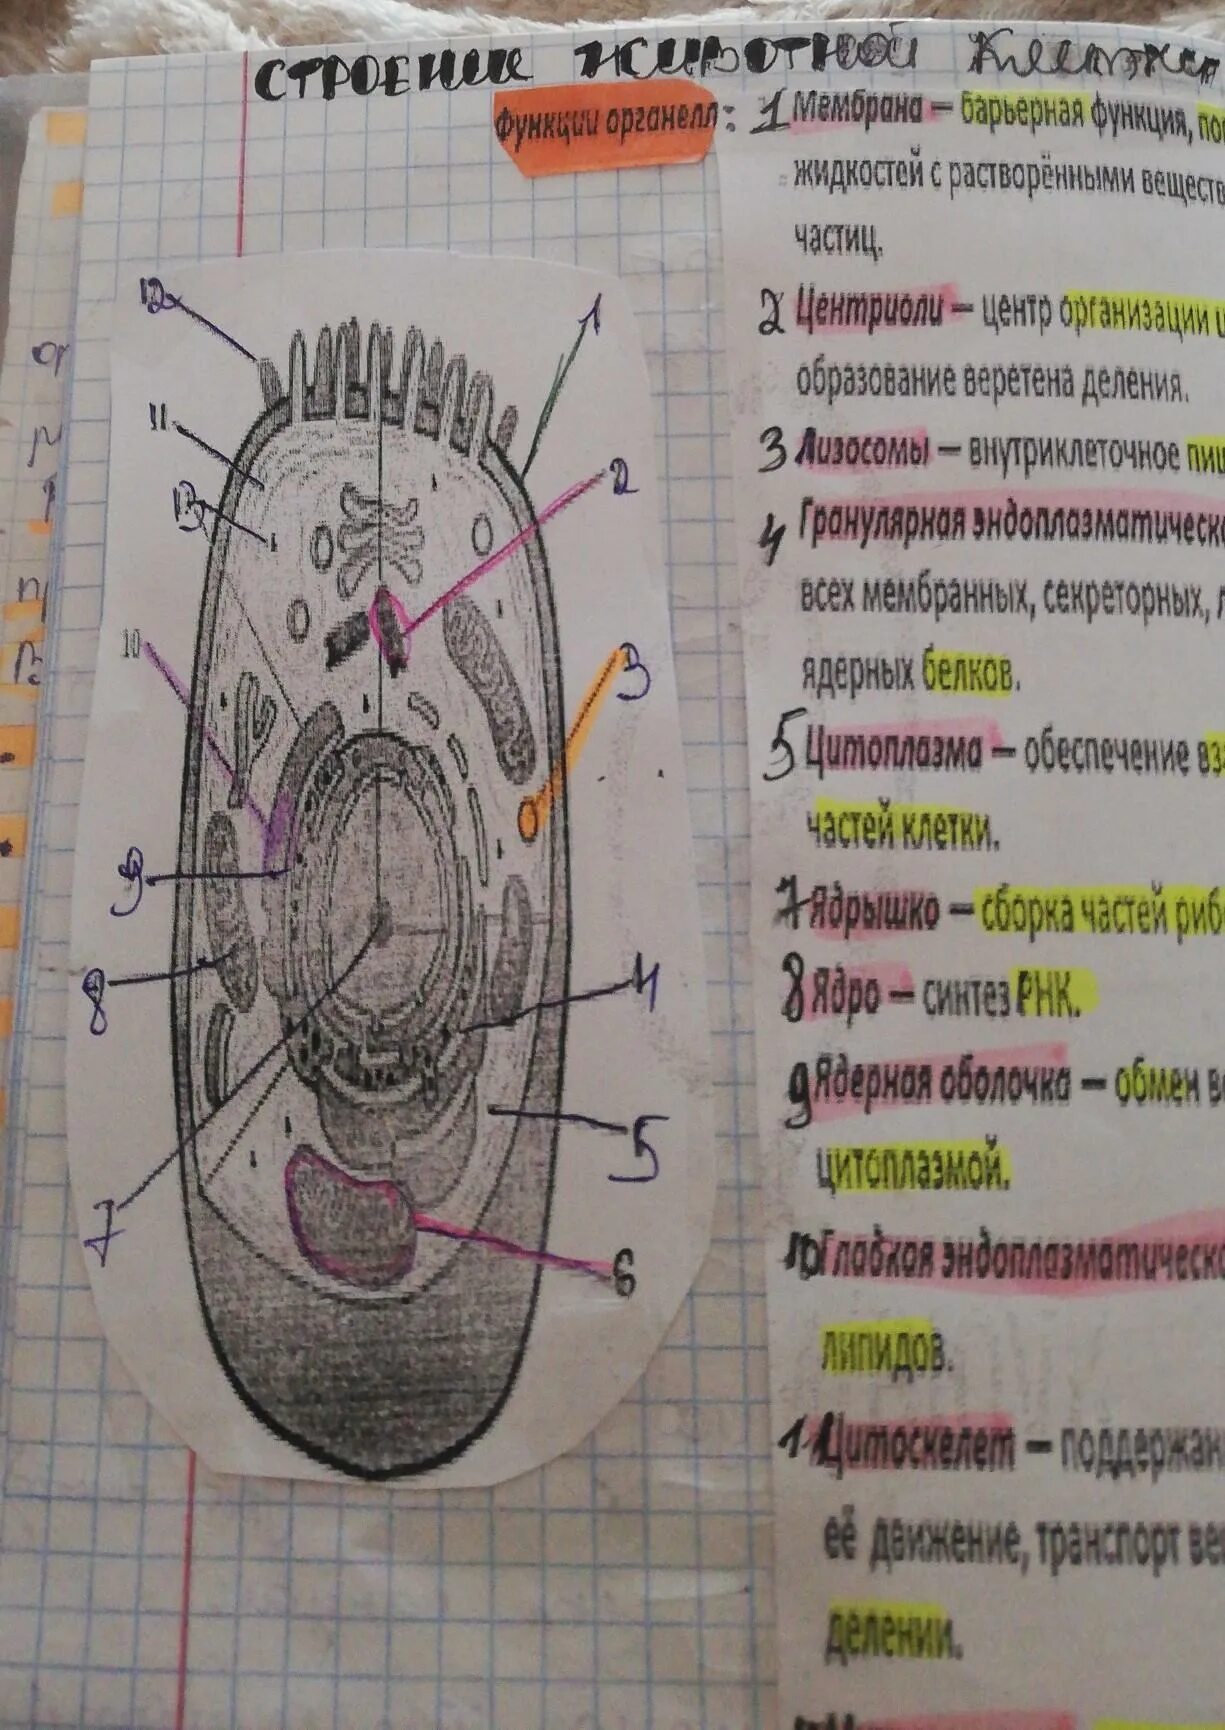 СТРОЕНИЕ ЖИВОТНОЙ
Функции органелл:
1 Мембрана – барьерная функция,
жидкостей с растворёнными
частиц.
2 Центриоли – центр организации
образование веретена деления.
3 Лизосомы – внутриклеточное
4 Гранулярная
всех мембранных, секреторных,
ядерных белков.
5 Цитоплазма – обеспечение
частей клетки.
7 Ядрышко – сборка частей
8 Ядро – синтез РНК.
9 Ядерная оболочка – обмен
цитоплазмой.
10 Гладкая
липидов.
11 Цитоскелет –
её движение, транспорт
делении.
12
1
11
2
13
10
3
9
8
4
5
7
6